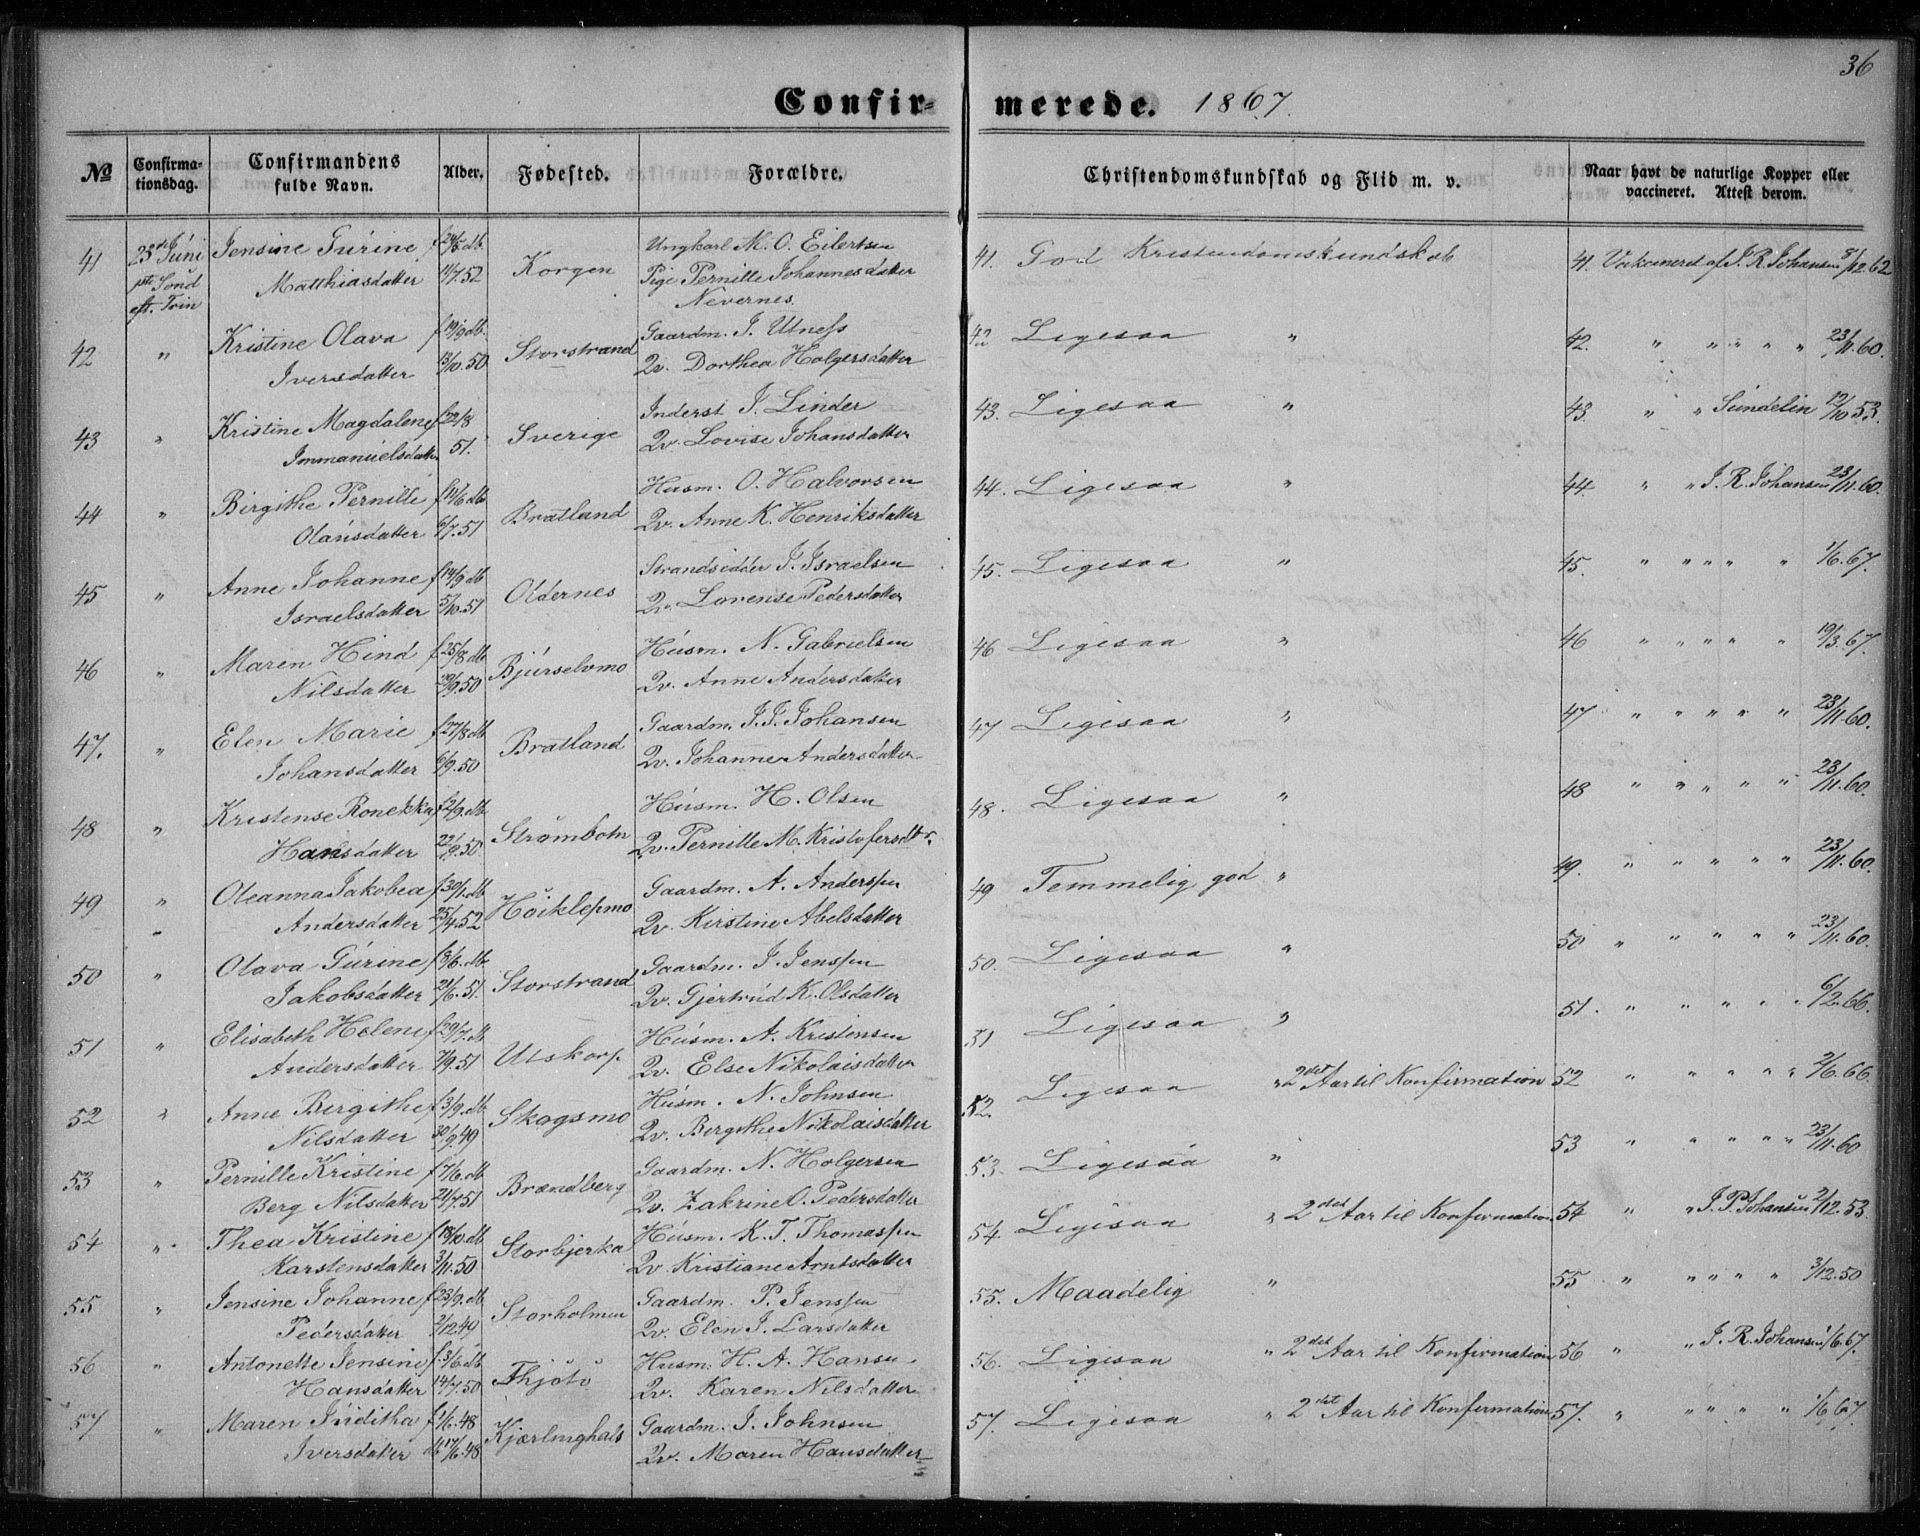 36
Confirmerede. 1867.
№
Confirmationsdag.
Confirmandens fulde Navn.
Alder.
Fødested.
Forældre.
Christendomskundskab og Flid m. v.
Naar havt de naturlige Kopper eller vaccineret. Attest derom.
41 23d Júni Jensine Gúrine f 24/5 db Korgen Ungkarl M. O. Eilertsen 41. God Kristendomskundskab 41. Vakcineret af J. R. Johansen 8/12.62
1ste Sönd Matthiasdatter 11/7.52 Pige Pernille Johannesdatter
eft. Trin Nevernes.
42 " Kristine Olava f 19/9 db. Storstrand Gaardm. I. Utness 42 Ligesaa " 42. " " " " " 23/11.60.
Iversdatter 13/10.50 Qv. Dorthea Holgersdatter
43 " Kristine Magdalene f 22/8 Sverige Inderst I. Linder 43. Ligesaa " 43 " " Sundelin 12/10 53.
Immanúelsdatter 51. Qv. Lovise Johansdatter
44 " Birgithe Pernille f 14/6 db Bratland Húsm. O. Halvorsen 44. Ligesaa " 44. " " J. R. Johansen 23/11.60.
Olaúsdatter 6/7.51 Qv. Anne K. Henriksdatter
45 " Anne Johanne f 14/9 db Oldernes Strandsidder I. Israelsen 45. Ligesaa " 45. " " " " " 1/6.67.
Israelsdatter 5/10.51 Qv. Lorense Pedersdatter
46 " Maren Hind f 25/8 db Bjúrselvmo Húsm. N. Gabrielsen 46 Ligesaa " 46 " " " " " 19/3.67.
Nilsdatter 29/9.50 Qv. Anne Andersdatter
47. " Elen Marie f 27/8 db Bratland Gaardm. J. J. Johansen 47 Ligesaa " 47 " " " " " 23/11.60.
Johansdatter 6/9.50 Qv. Johanne Andersdatter
48 " Kristense Ronekka f 2/9. db Strømbotn Húsm. H. Olsen 48. Ligesaa " 48 " " " " " 23/11.60.
Hansdatter 22/9.50 Qv. Pernille M. Kristofersdtr.
49 " Oleanna Jakobea f 30/1. db Höiklepmo Gaardm. A. Anderssen 49 Temmelig god " 49. " " " " " 23/11.60.
" Andersdatter 25/4.52 Qv. Kirstine Abelsdatter
50 " Olava Gúrine f 3/6. db Storstrand Gaardm. J. Jenssen 50. Ligesaa " 50 " " " " " 23/11.60.
Jakobsdatter 21/6.51. Qv. Gjertrúd K. Olsdatter
51 " Elisabeth Helene f 29/7. db Utskarp Húsm. A. Kristensen 51 Ligesaa " 51. " " " " " 6/2.66.
Andersdatter 7/9.51 Qv. Else Nikolaisdatter
52 " Anne Bergithe f 3/9. db Skogsmo Húsm. N. Johnsen 52. Ligesaa " 2det Aar til Konfirmation 52 " " " " " 2/6.66.
Nilsdatter 30/9.49 Qv. Bergithe Nikolaisdatter
53 " Pernille Kristine f 7/6. db Brændberg Gaardm. N. Holgersen 53. Ligesaa " 53 " " " " " 23/11.60
Berg Nilsdatter 21/7.51 Qv. Zakrine O. Pedersdatter
54 " Thea Kristine f 18/10 db Storbjerka Húsm. K. T. Thomassen 54. Ligesaa " 2det Aar til Konfirmation 54 " " J. P. Johansen 2/12.53
Karstensdatter 3/11.50 Qv Kristiane Arntsdatter
55 " Jensine Johanne f 23/9. db Storholmen Gaardm. P. Jenssen 55. Maadelig " 55 " " " " " 3/12.50
Pedersdatter 2/12.49 Qv. Elen J. Larsdatter
56 " Antonette Jensine f 3/6. db Thjötö Husm. H. A. Hansen 56. Ligesaa " 2det Aar til Konfirmation 56 " " J. R. Johansen 1/6.67.
Hansdatter 14/7.50 Qv. Karen Nilsdatter
57 " Maren Júditha f 1/6.48 Kjærlinghals Gaardm. I. Johnsen 57. Ligesaa " 2det Aar til Konfirmation 57. " " " " " 1/6 67.
Iversdatter db 17/6.48 Qv. Maren Hansdatter